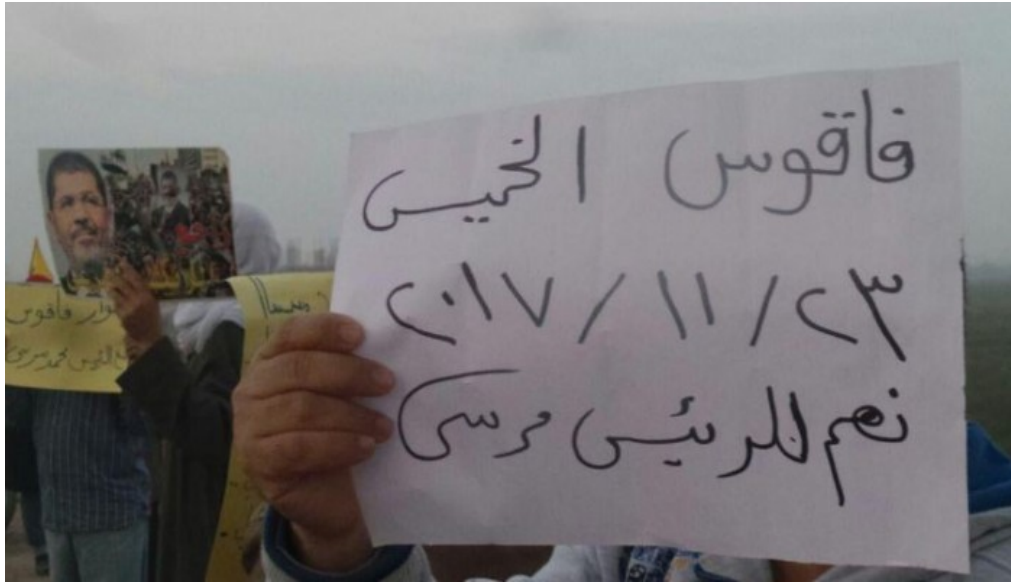 فاقوس الخميس
٢٠١٧/١١/٢٣
نعم للرئيس مرسى
ثوار فاقوس
الرئيس محمد مرسى